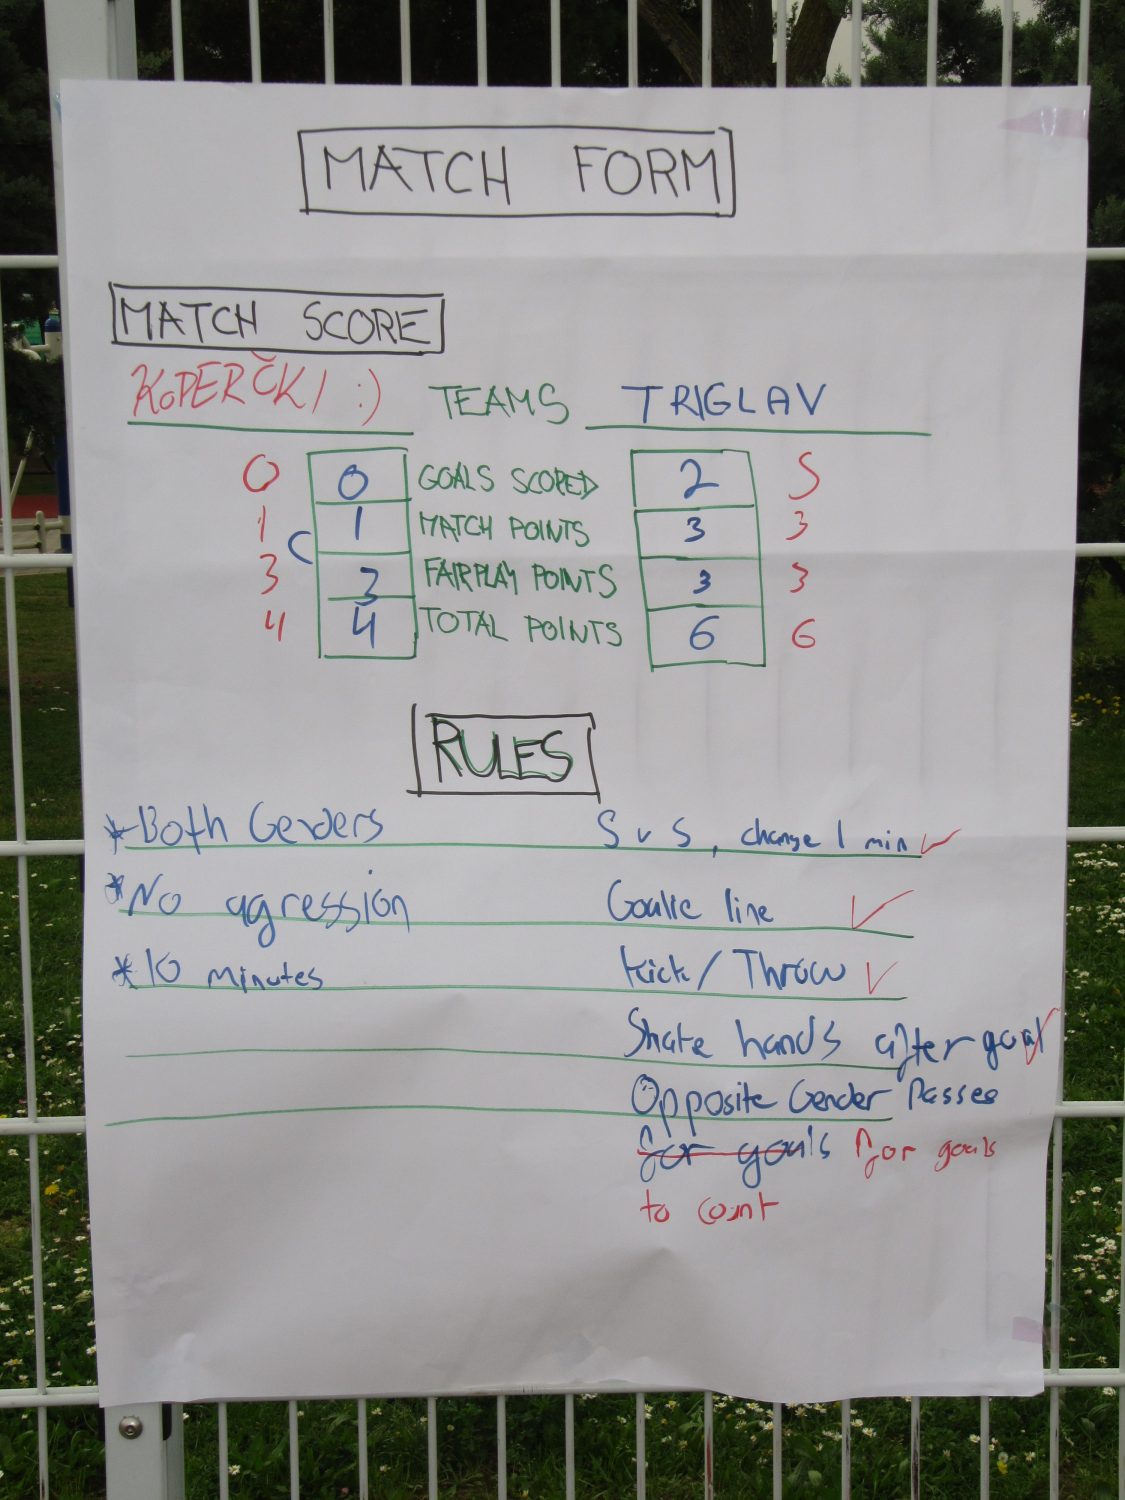 MATCH FORM
MATCH SCORE
KOPERČKI :) TEAMS TRIGLAV
0 0 GOALS SCORED 2 5
1 1 MATCH POINTS 3 3
3 3 FAIRPLAY POINTS 3 3
4 4 TOTAL POINTS 6 6
RULES
* Both Genders 5 v 5, change 1 min ✓
* No agression Goalie line ✓
* 10 minutes Kick/Throw ✓
Shake hands after goal ✓
Opposite Gender Passes
for goals for goals
to count